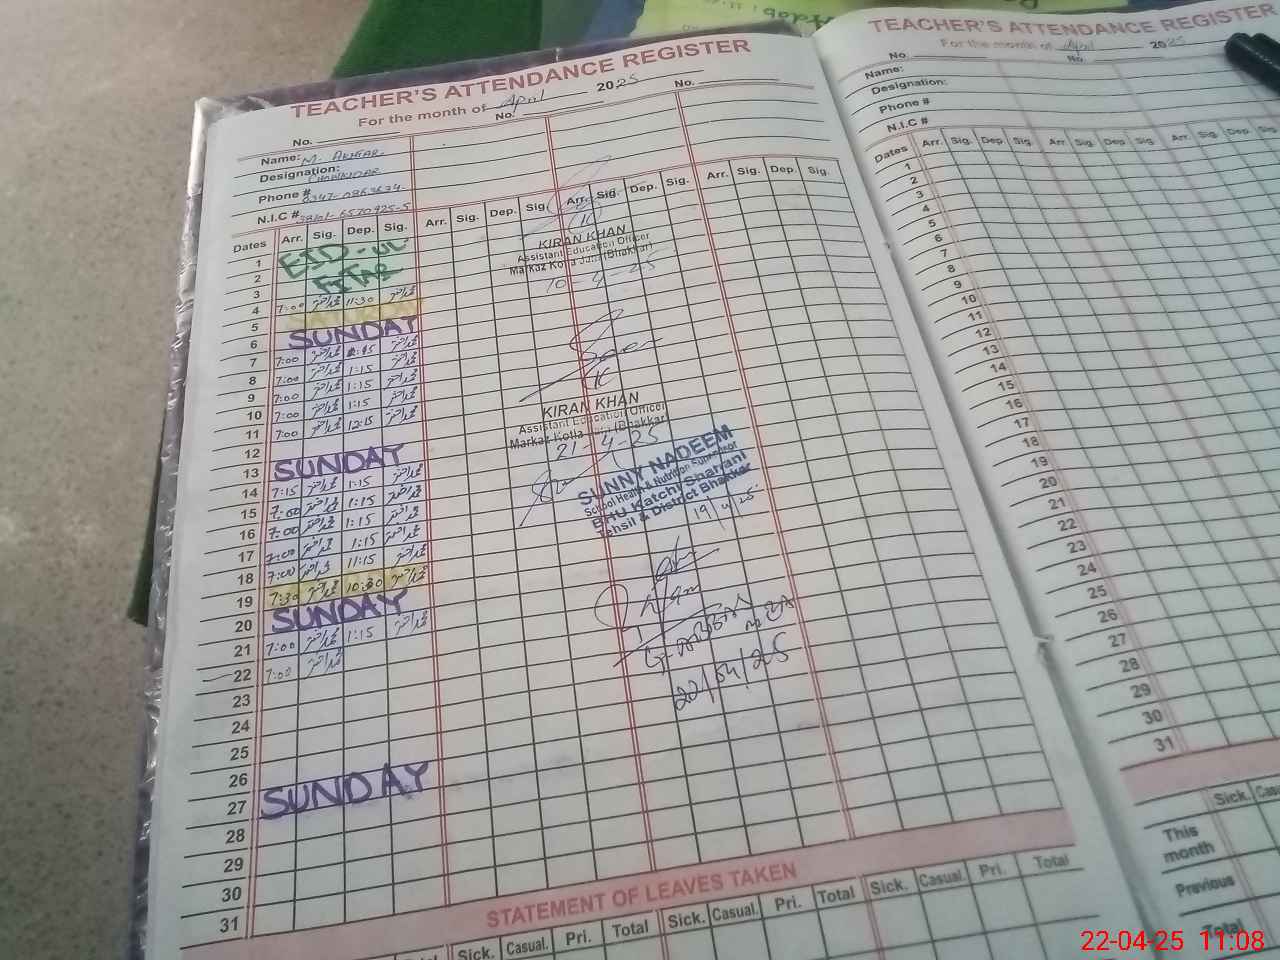 TEACHER'S ATTENDANCE REGISTER
For the month of April 2025
No. No. No.
Name: M. AKHTAR
Designation: CHOWKIDAR
Phone #
N.I.C #
Dates Arr. Sig. Dep. Sig. Arr. Sig. Dep. Sig. Arr. Sig. Dep. Sig. Arr. Sig. Dep. Sig.
1 EID-UL
2 FITAR
3
4 7:00 11:30
5 SATURDAY
6 SUNDAY
7 7:00
8 7:00 1:15
9 7:00 1:15
10 7:00 1:15
11 7:00 12:15
12
13 SUNDAY
14 7:15 1:15
15 7:00 1:15
16 7:00 1:15
17 7:00 1:15
18 7:00 11:15
19 7:30 10:30
20 SUNDAY
21 7:00 1:15
22 7:00
23
24
25
26
27 SUNDAY
28
29
30
31
KIRAN KHAN
Assistant Education Officer
Markaz Kotla Jam (Bhakkar)
10-4-25
KIRAN KHAN
Assistant Education Officer
Markaz Kotla Jam (Bhakkar)
21-4-25
SUNNY NADEEM
School Health & Nutrition Supervisor
BHU Katchi Shahani
Tehsil & District Bhakkar
19/4/25
MEA
22/04/25
STATEMENT OF LEAVES TAKEN
Total Sick. Casual. Pri. Total Sick. Casual. Pri. Total Sick. Casual. Pri. Total
TEACHER'S ATTENDANCE REGISTER
For the month of April 2025
No. No.
Name:
Designation:
Phone #
N.I.C #
Dates Arr. Sig. Dep. Sig. Arr. Sig. Dep. Sig. Arr. Sig. Dep. Sig.
1
2
3
4
5
6
7
8
9
10
11
12
13
14
15
16
17
18
19
20
21
22
23
24
25
26
27
28
29
30
31
Sick.
This month
Previous
Total
22-04-25 11:08